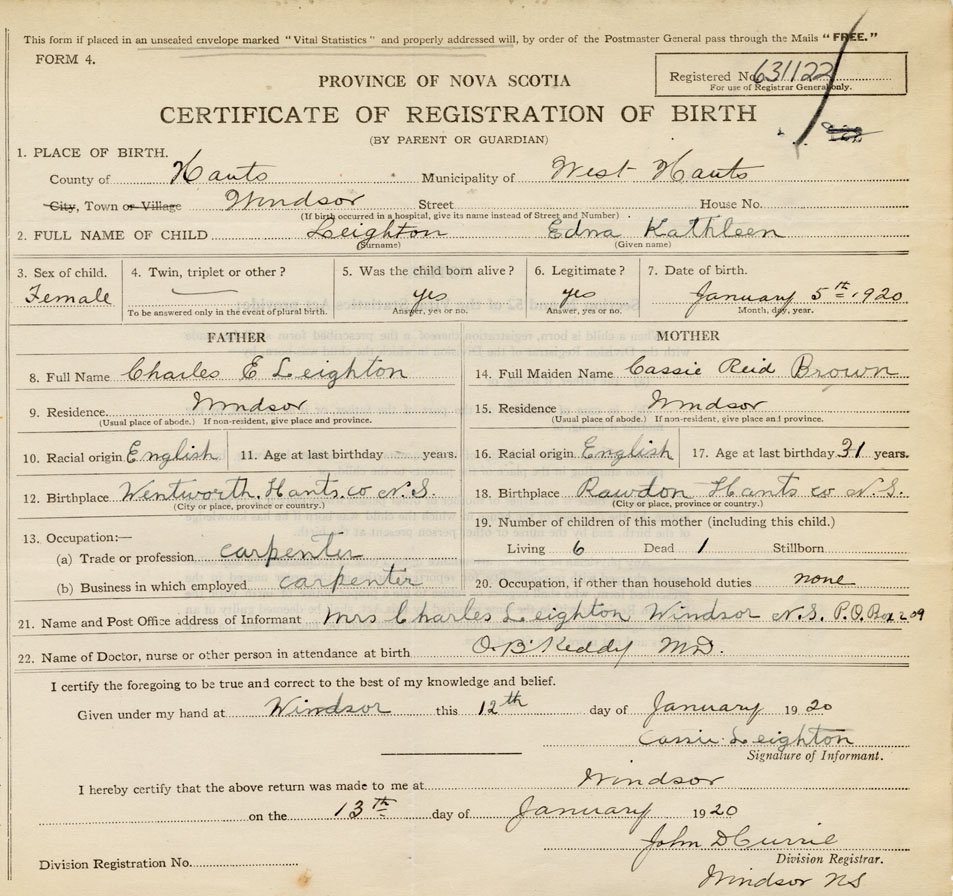 This form if placed in an unsealed envelope marked "Vital Statistics" and properly addressed will, by order of the Postmaster General pass through the Mails "FREE."
FORM 4.
PROVINCE OF NOVA SCOTIA
Registered No. 631122
For use of Registrar General only.
CERTIFICATE OF REGISTRATION OF BIRTH
(BY PARENT OR GUARDIAN)
1. PLACE OF BIRTH.
County of Hants Municipality of West Hants
City, Town or Village Windsor Street House No.
(If birth occurred in a hospital, give its name instead of Street and Number)
2. FULL NAME OF CHILD Leighton Edna Kathleen
(Surname) (Given name)
3. Sex of child. 4. Twin, triplet or other? 5. Was the child born alive? 6. Legitimate? 7. Date of birth.
Female — yes yes January 5th 1920
To be answered only in the event of plural birth. Answer, yes or no. Answer, yes or no. Month, day, year.
FATHER MOTHER
8. Full Name Charles E Leighton 14. Full Maiden Name Cassie Reid Brown
9. Residence Windsor 15. Residence Windsor
(Usual place of abode.) If non-resident, give place and province. (Usual place of abode.) If non-resident, give place and province.
10. Racial origin English 11. Age at last birthday - years. 16. Racial origin English 17. Age at last birthday 31 years.
12. Birthplace Wentworth. Hants. co N.S. 18. Birthplace Rawdon Hants co N.S.
(City or place, province or country.) (City or place, province or country.)
13. Occupation:— 19. Number of children of this mother (including this child.)
(a) Trade or profession carpenter Living 6 Dead 1 Stillborn
(b) Business in which employed carpenter 20. Occupation, if other than household duties none
21. Name and Post Office address of Informant Mrs Charles Leighton Windsor N.S. P.O. Box 209
22. Name of Doctor, nurse or other person in attendance at birth O.B. Keddy MD.
I certify the foregoing to be true and correct to the best of my knowledge and belief.
Given under my hand at Windsor this 12th day of January 1920
Cassie Leighton
Signature of Informant.
I hereby certify that the above return was made to me at Windsor
on the 13th day of January 1920
John D Currie
Division Registrar.
Division Registration No.
Windsor NS